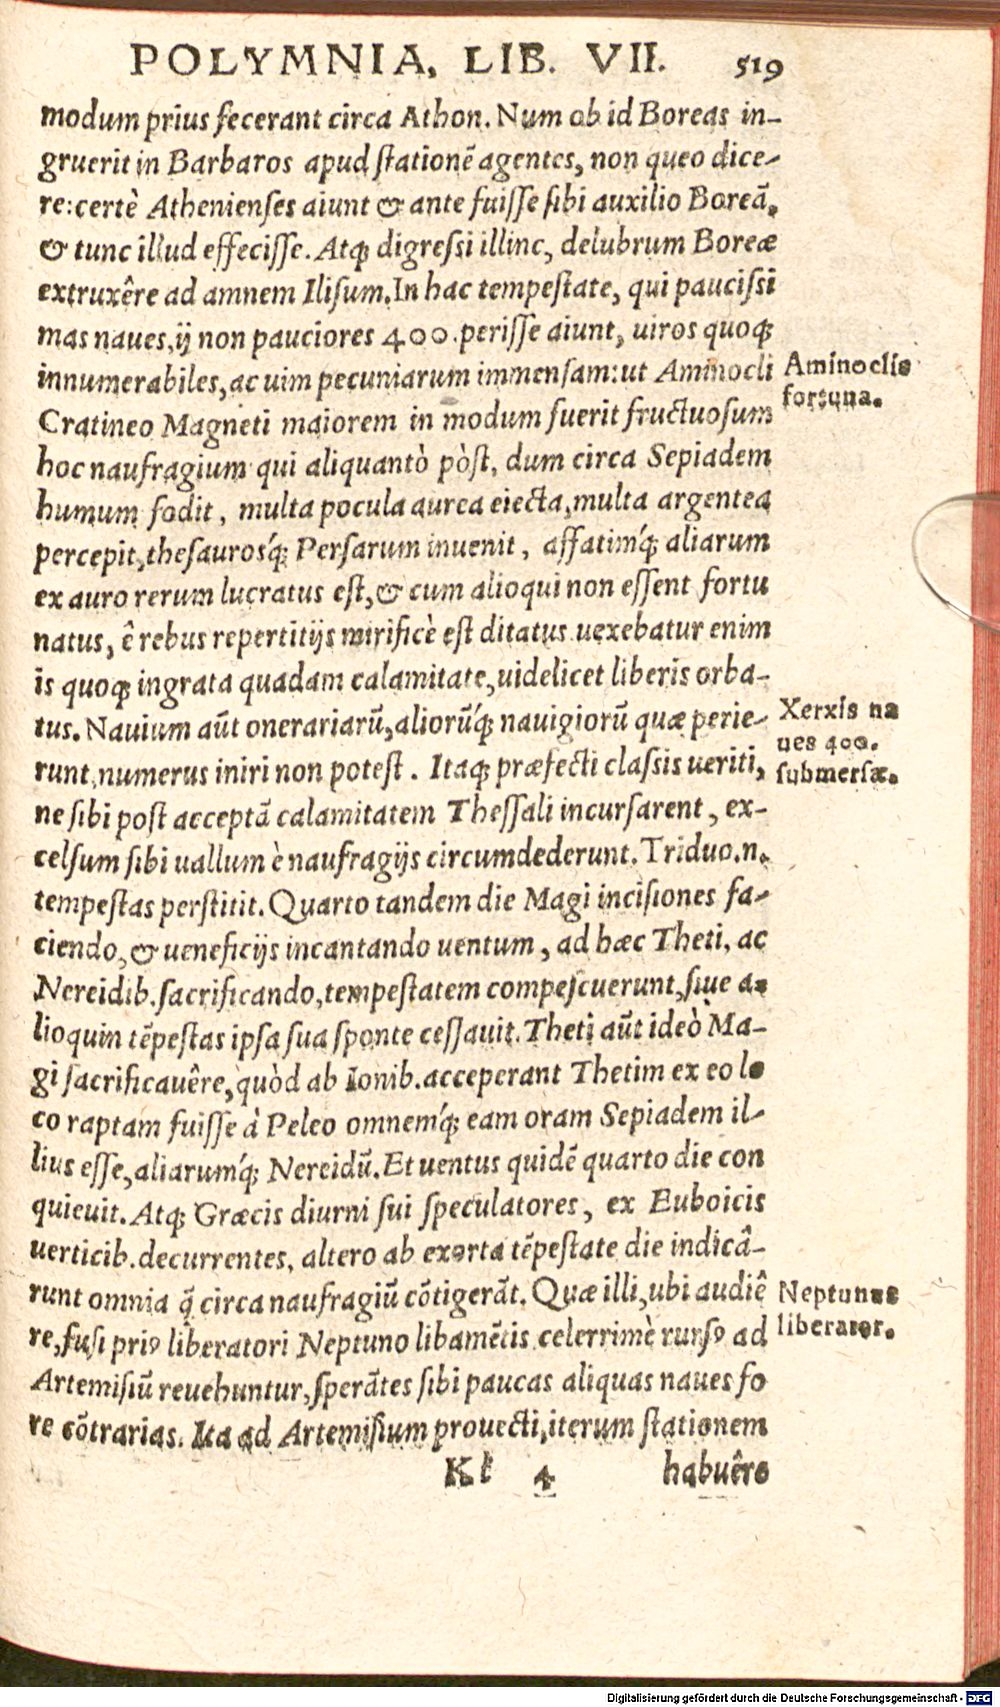 POLYMNIA, LIB. VII. 519
modum prius fecerant circa Athon. Num ob id Boreas in-
gruerit in Barbaros apud ſtationē agentes, non queo dice-
re: certè Athenienſes aiunt & ante fuiſſe ſibi auxilio Boreā,
& tunc illud effeciſſe. Atq; digreſsi illinc, delubrum Boreæ
extruxêre ad amnem Iliſum. In hac tempeſtate, qui pauciſsi
mas naues, ij non pauciores 400. periſſe aiunt, uiros quoq;
innumerabiles, ac uim pecuniarum immenſam: ut Aminocli
Aminoclis
fortuna.
Cratineo Magneti maiorem in modum fuerit fructuoſum
hoc naufragium qui aliquantò pòſt, dum circa Sepiadem
humum fodit, multa pocula aurea eiecta, multa argentea
percepit, theſauroſq́; Perſarum inuenit, affatimq́; aliarum
ex auro rerum lucratus eſt, & cum alioqui non eſſent fortu
natus, ê rebus repertitijs mirificè eſt ditatus uexebatur enim
is quoq; ingrata quadam calamitate, uidelicet liberis orba-
tus. Nauium aūt onerariarū, aliorūq́; nauigiorū quæ perie-
Xerxis na
ues 400.
ſubmerſæ.
runt, numerus iniri non poteſt. Itaq; præfecti claſsis ueriti,
ne ſibi poſt acceptā calamitatem Theſſali incurſarent, ex-
celſum ſibi uallum è naufragijs circumdederunt. Triduo. n.
tempeſtas perſtitit. Quarto tandem die Magi inciſiones fa-
ciendo, & ueneficijs incantando uentum, ad hæc Theti, ac
Nereidib. ſacrificando, tempeſtatem compeſcuerunt, ſiue a-
lioquin tēpeſtas ipſa ſua ſponte ceſſauit. Theti aūt ideò Ma-
gi ſacrificauêre, quòd ab Ionib. acceperant Thetim ex eo lo
co raptam fuiſſe à Peleo omnemq́; eam oram Sepiadem il-
lius eſſe, aliarumq́; Nereidū. Et uentus quidē quarto die con
quieuit. Atq; Græcis diurni ſui ſpeculatores, ex Euboicis
uerticib. decurrentes, altero ab exorta tēpeſtate die indicâ-
runt omnia q̄ circa naufragiū cōtigerāt. Quæ illi, ubi audiê
Neptunus
liberator.
re, fuſi priꝰ liberatori Neptuno libamētis celerrimè rurſꝰ ad
Artemiſiū reuehuntur, ſperātes ſibi paucas aliquas naues fo
re cōtrarias. Ita ad Artemiſium prouecti, iterum ſtationem
Kk 4 habuêre
Digitalisierung gefördert durch die Deutsche Forschungsgemeinschaft - DFG